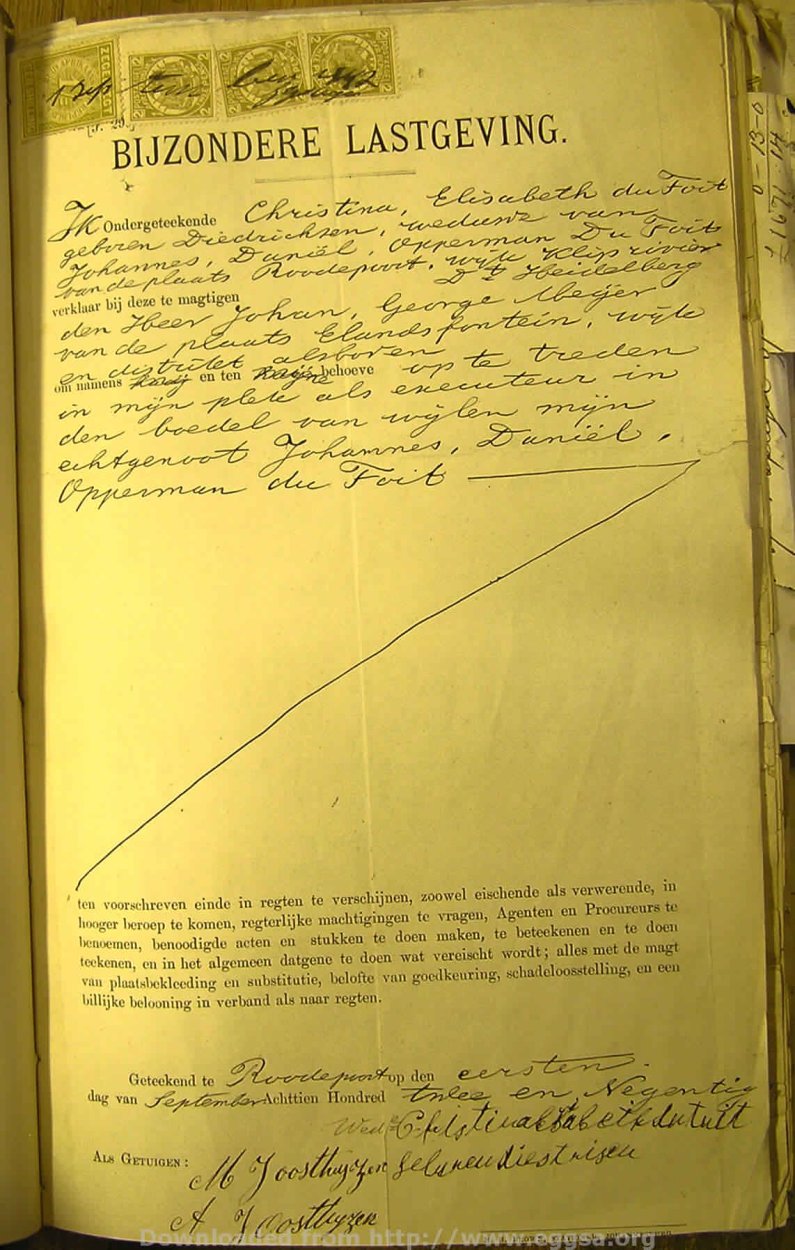 1 Sept
1892
BIJZONDERE LASTGEVING.
IK Ondergeteekende Christina, Elisabeth du Toit
geboren Diedrichsen, weduwe van
Johannes, Daniël, Opperman Du Toit
van de plaats Roodepoort, wijk Kliprivier
Dt Heidelberg
verklaar bij deze te magtigen
den Heer Johan, George Meijer
van de plaats Elandsfontein, wijk
en district alsboven
om namens mij en ten mijne behoeve op te treden
in mijn plek als executeur in
den boedel van wijlen mijn
echtgenoot Johannes, Daniël,
Opperman du Toit
ten voorschreven einde in regten te verschijnen, zoowel eischende als verwerende, in
hooger beroep te komen, regterlijke machtigingen te vragen, Agenten en Procureurs te
benoemen, benoodigde acten en stukken te doen maken, te beteekenen en te doen
teekenen, en in het algemeen datgene te doen wat vereischt wordt; alles met de magt
van plaatsbekleeding en substitutie, belofte van goedkeuring, schadeloosstelling, en een
billijke belooning in verband als naar regten.
Geteekend te Roodepoort op den eersten
dag van September Achttien Hondred twee en Negentig
Wed
ALS GETUIGEN:
M J oosthuyzen
A J Oosthyzen
Downloaded from http://www.eggsa.org